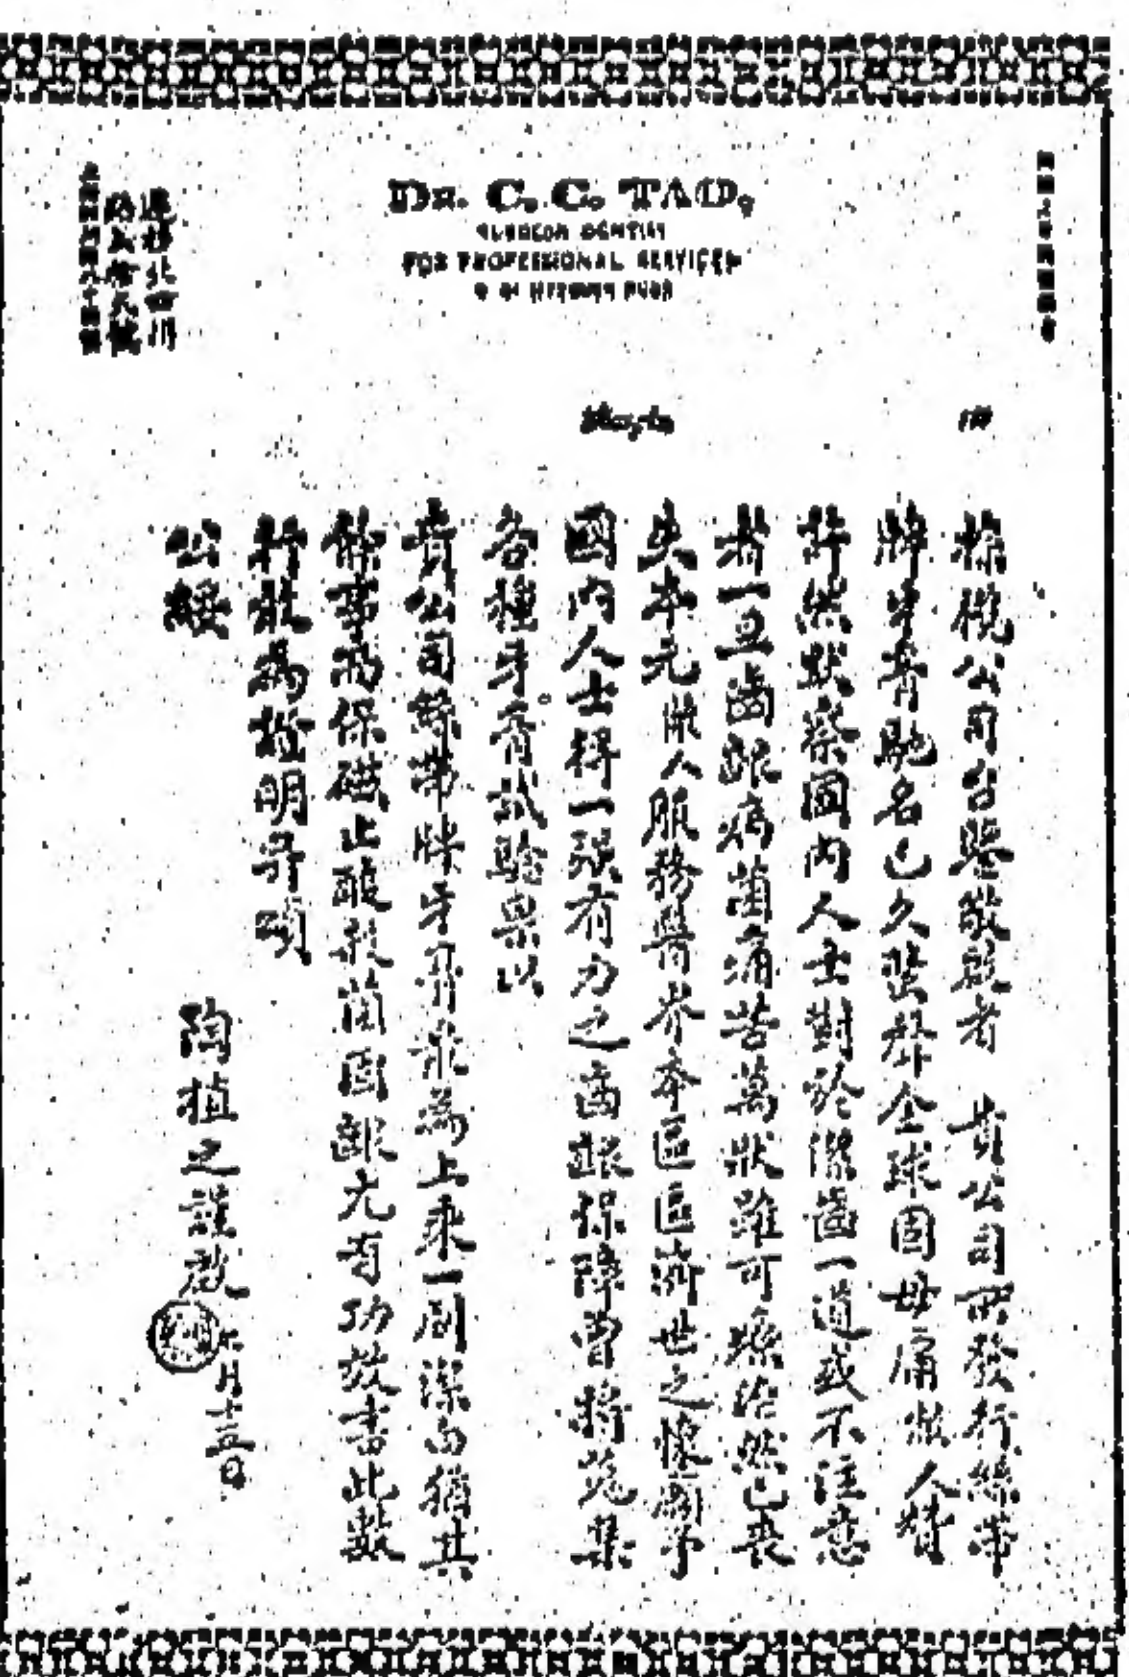 DR. C. C. TAO,
SURGEON DENTIST
FOR PROFESSIONAL SERVICES
遷移北四川
棕欖公司台鑒敬啟者 貴公司所發行絲帶
牌牙膏馳名已久蜚聲全球固毋庸敝人贊
許然默察國內人士對於潔齒一道或不注意
者一旦齒齦病菌痛苦萬狀雖可療治然已喪
失本元敝人服務醫界本區區濟世之懷欲予
國內人士得一強有力之齒齦保障曾將蒐集
各種牙膏試驗果以
貴公司絲帶牌牙膏最為上乘一刷潔白猶其
餘事而保礠止酸殺菌固齦尤有功效書此數
行敢為證明尋頌
公綏
陶植之謹啟
六月十三日